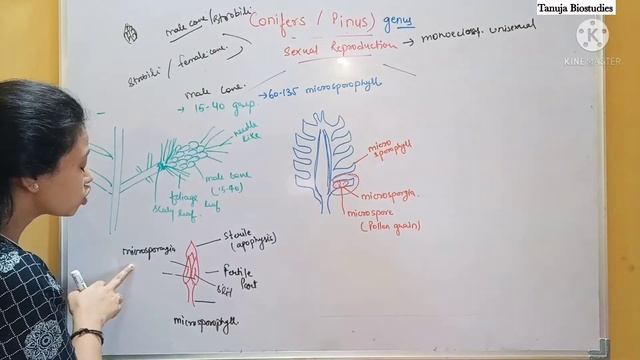 Tanuja Biostudies
KINEMASTER
Conifers / Pinus) genus
male cone / strobili
Sexual Reproduction → monoecious. unisexual
strobili / female cone.
male cone.
→ 15-40 group. → 60-135 microsporophyll
needle
like
male cone
(15-40)
foliage
leaf
Scaly leaf.
micro
sporophyll
microsporangia.
microspore
(Pollen grain)
Sterile
(apophysis)
microsporangia
Fertile
Part
slit
microsporophyll